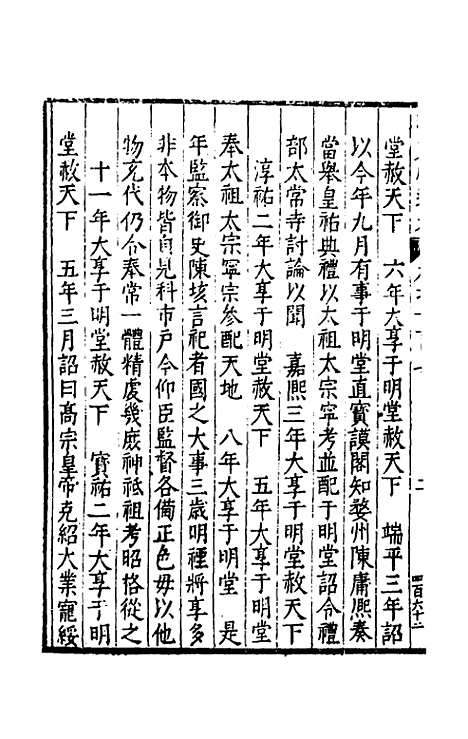 堂赦天下　六年大享于明堂赦天下　端平三年詔
以今年九月有事于明堂直寳謨閣知婺州陳庸熙奏
當舉皇祐典禮以太祖太宗寧考並配于明堂詔令禮
部太常寺討論以聞　嘉熙三年大享于明堂赦天下
淳祐二年大享于明堂赦天下　五年大享于明堂
奉太祖太宗寧宗參配天地　八年大享于明堂　是
年監察御史陳垓言祀者國之大事三歳明禋將享多
非本物皆自見科市戸令仰臣監督各備正色毋以他
物充代仍令奉常一體精虔幾庻神祗祖考昭格從之
十一年大享于明堂赦天下　寳祐二年大享于明
堂赦天下　五年三月詔曰髙宗皇帝克紹大業寵綏
二
四百六十二